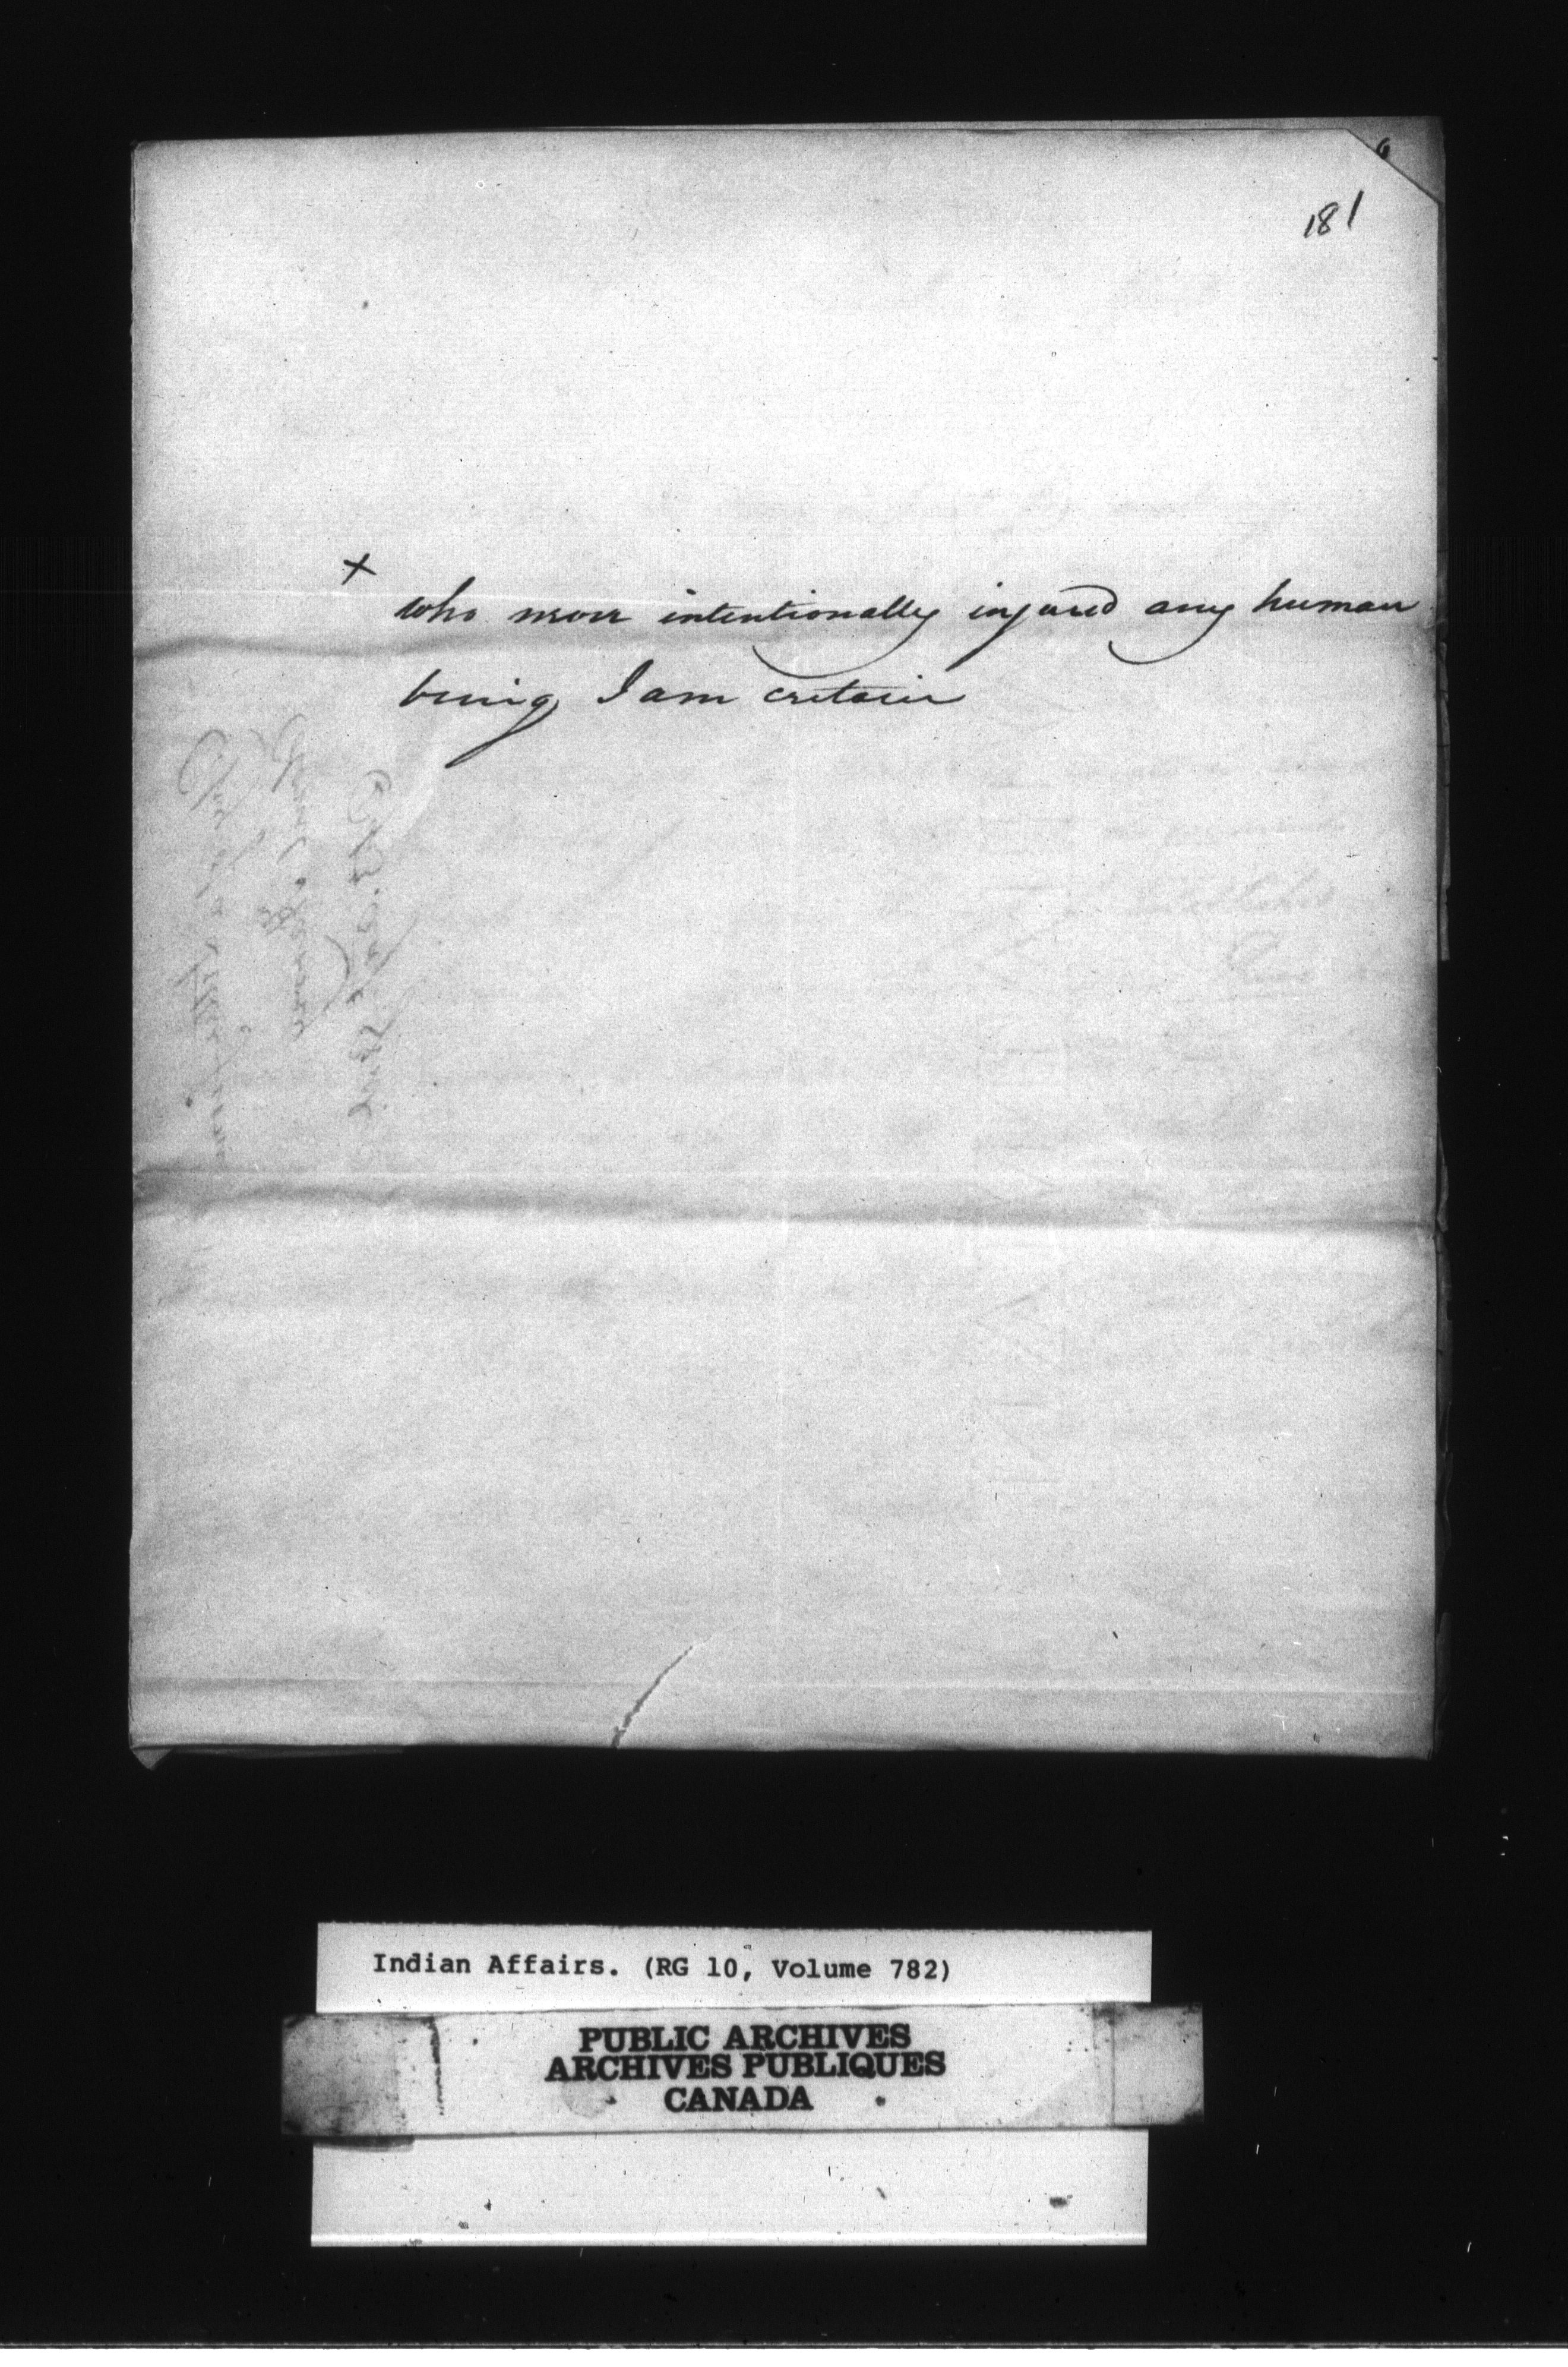 181
+
who never intentionally injured any human
being, I am certain
Indian Affairs. (RG 10, Volume 782)
PUBLIC ARCHIVES
ARCHIVES PUBLIQUES
CANADA